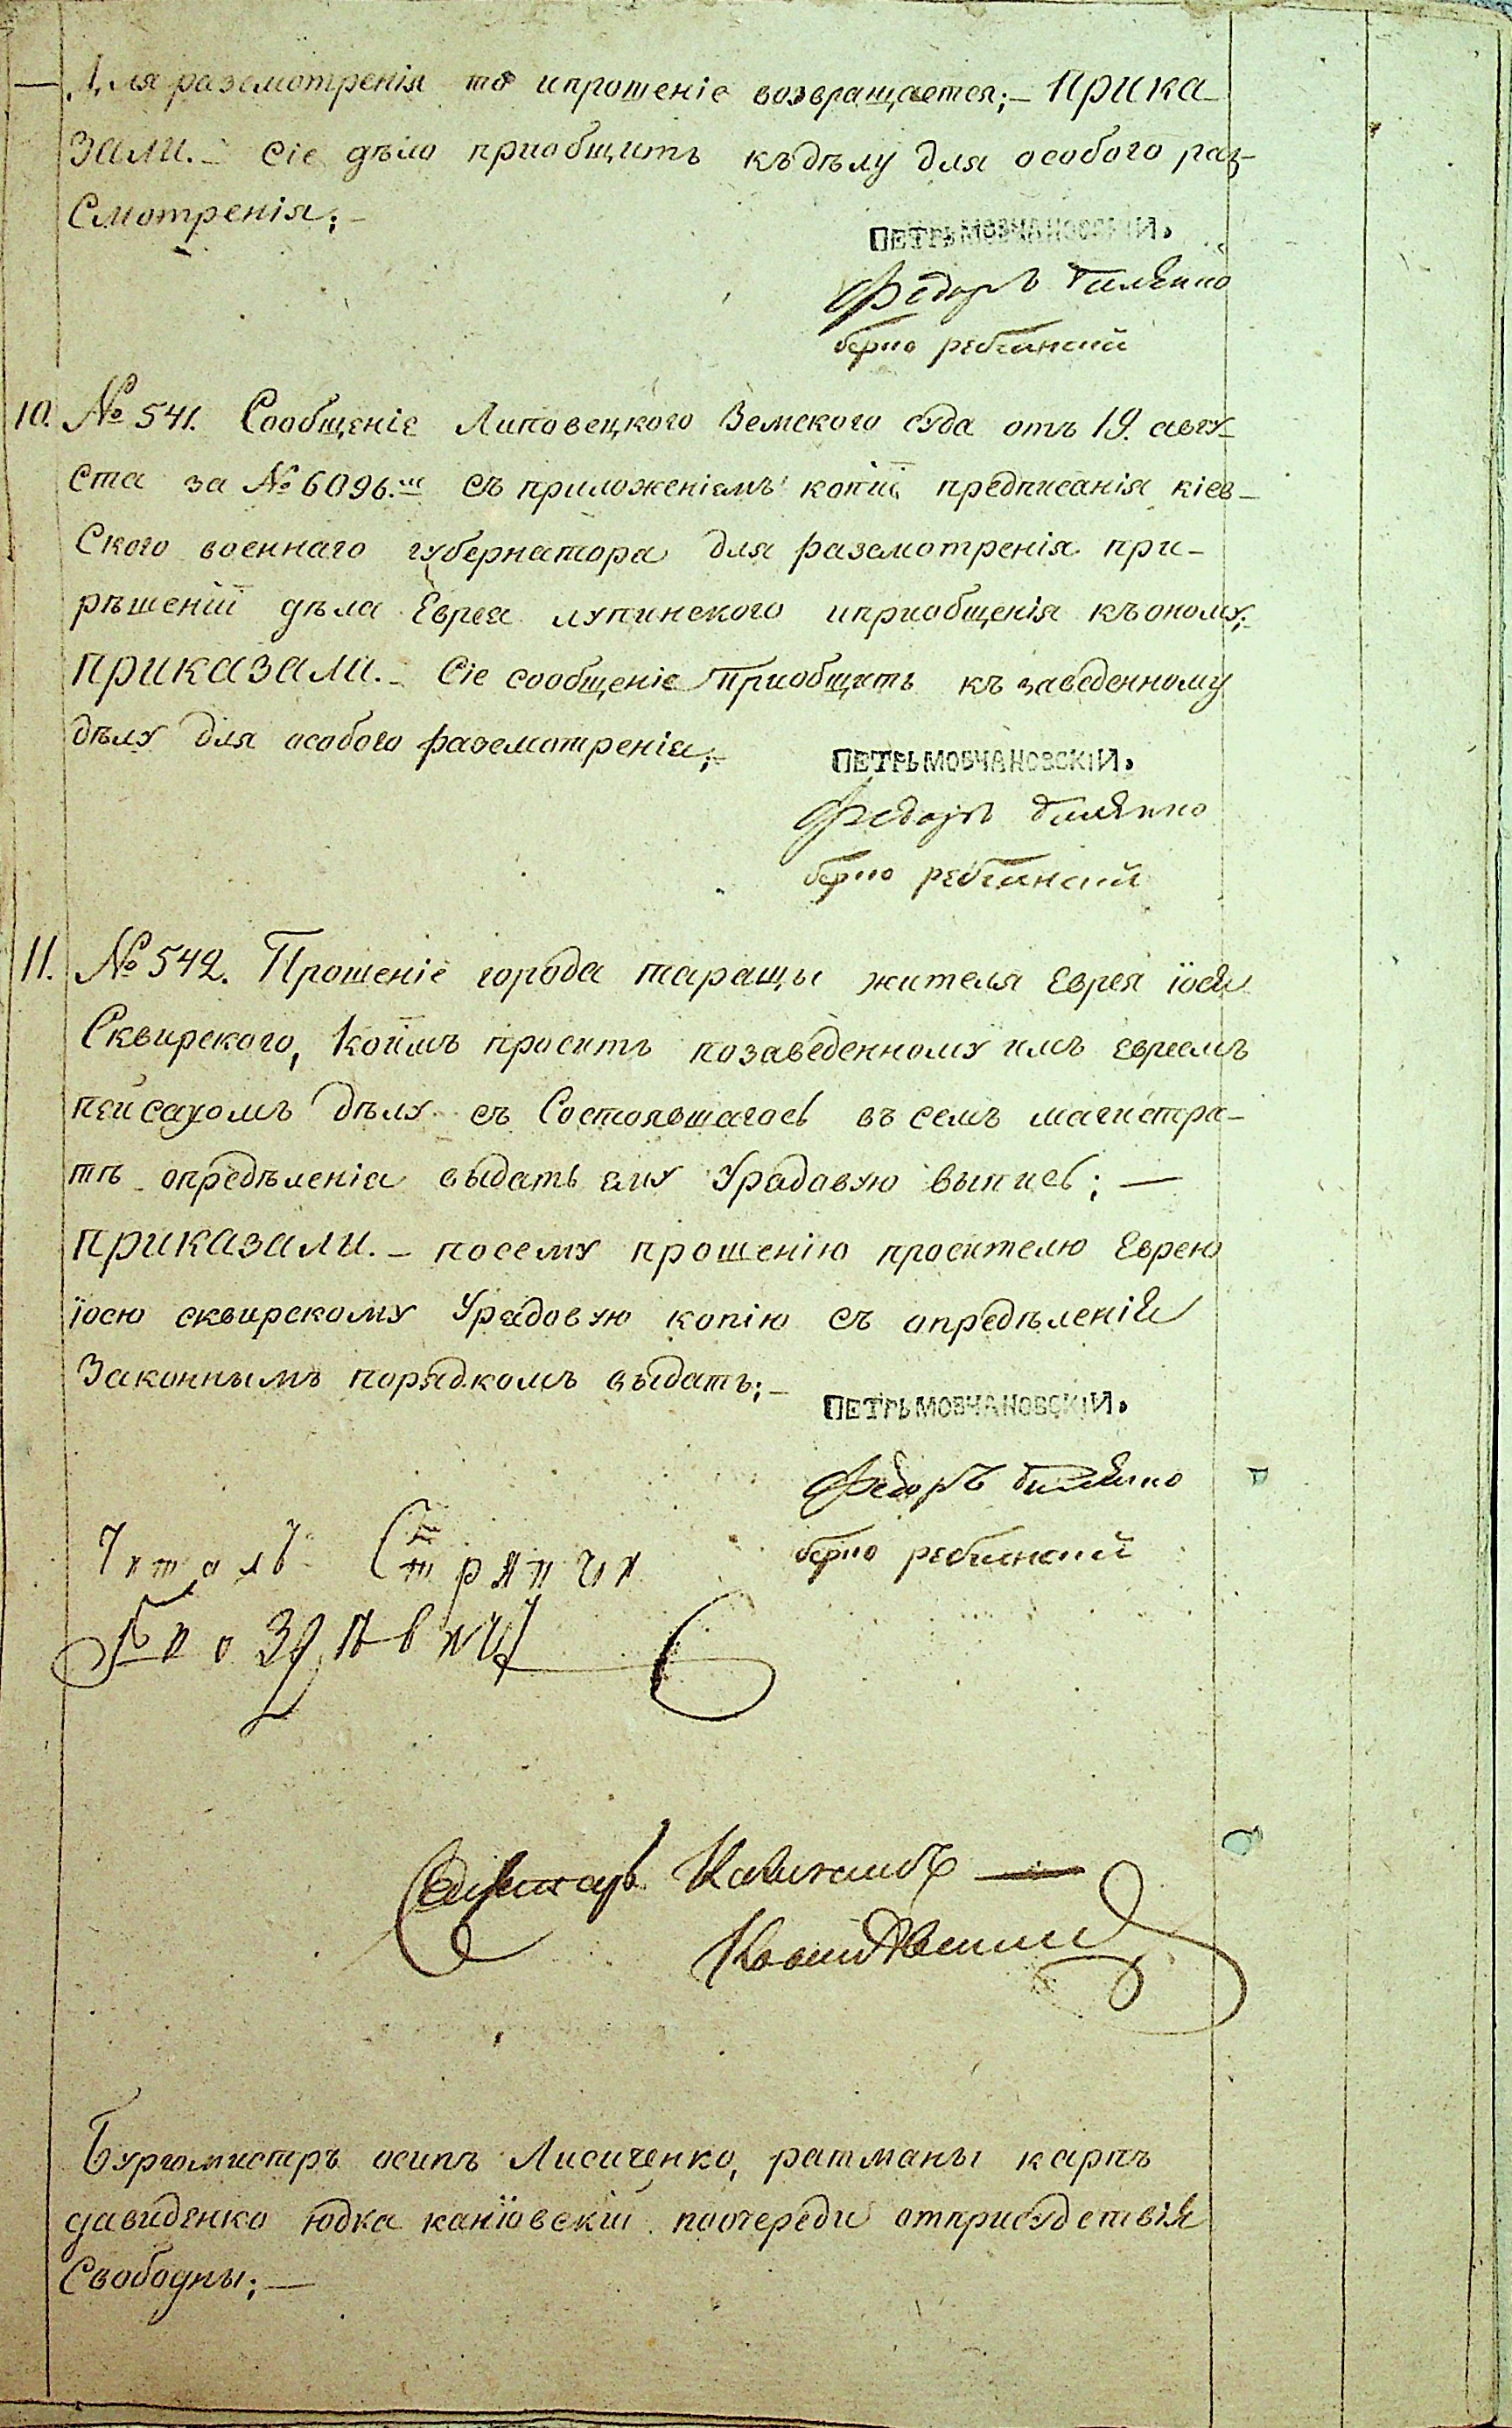 Для разсмотренія то ипрошеніе возвращается;– Прика
зали.– сіе дѣло приобщить къдѣлу для особого раз–
Смотренія;–
ПЕТРЬ МОВЧАНОВСКІЙ.
Федоръ
берко
10. № 541. Сообщеніе Липовецкого Земского суда отъ 19. авгу–
ста за № 6096.м съ приложеніемъ копіи предписанія кіев–
Ского военнаго губернатора для разсмотренія при–
рѣшеніи дѣла Еврея лупинского иприобщенія къоному;
приказали.– Сіе сообщеніе приобщить къ заведенному
дѣлу для особого разсмотренія;–
ПЕТРЬ МОВЧАНОВСКІЙ.
Федоръ
берко
11. № 542. Прошеніе города таращы жителя Еврея іося
Сквирского, коимъ проситъ позаведенному имъ евреемъ
пейсахомъ дѣлу съ Состоявшагось въ семъ магистра–
тѣ опредѣленія выдать ему Урадовую выпись; —
приказали.– посему прошенію просителю Еврею
їосю сквирскому Урядовую копію съ опредѣленія
Законнымъ порядкомъ выдать;–
ПЕТРЬ МОВЧАНОВСКІЙ.
Федоръ
берко
Читалъ Стряпчи
Секретарь
Бургомистръ осипъ Лисиченко, ратманы карпъ
давиденко юдка каніовскій поочереди отприсудствія
Свободны;—